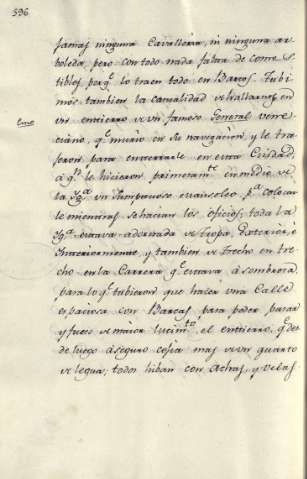 596
jamas ninguna Cavalleria, ni ninguna ar-
boleda, pero con todo nada faltar de come-
stibles porq.e lo traen todo en Barcos. Tubi-
mos tambien la casualidad de hallarnos en
un entierro de un famoso General vene-
ciano, q.e murio en su navegacion, y le tra-
jeron para enterrarle en esta Ciudad,
a q.n le hicieron primeram.te en medio de
la Yg.a un sumptuoso mausoleo p.a colocar-
le mientras se hacian los oficios; toda la
Yg.a estava adornada de ropa, exterior, e
Interiormente, y tambien de trecho en tre-
cho en la Carrera q.e estava a sombrera
para lo q.e tubieron que hacer una Calle
espaciosa con Barcas, para poder pasar
y fuese de maior lucim.to el entierro, q.e des-
de luego aseguro cojia mas de un quarto
de legua; todos hiban con Achas, y velas